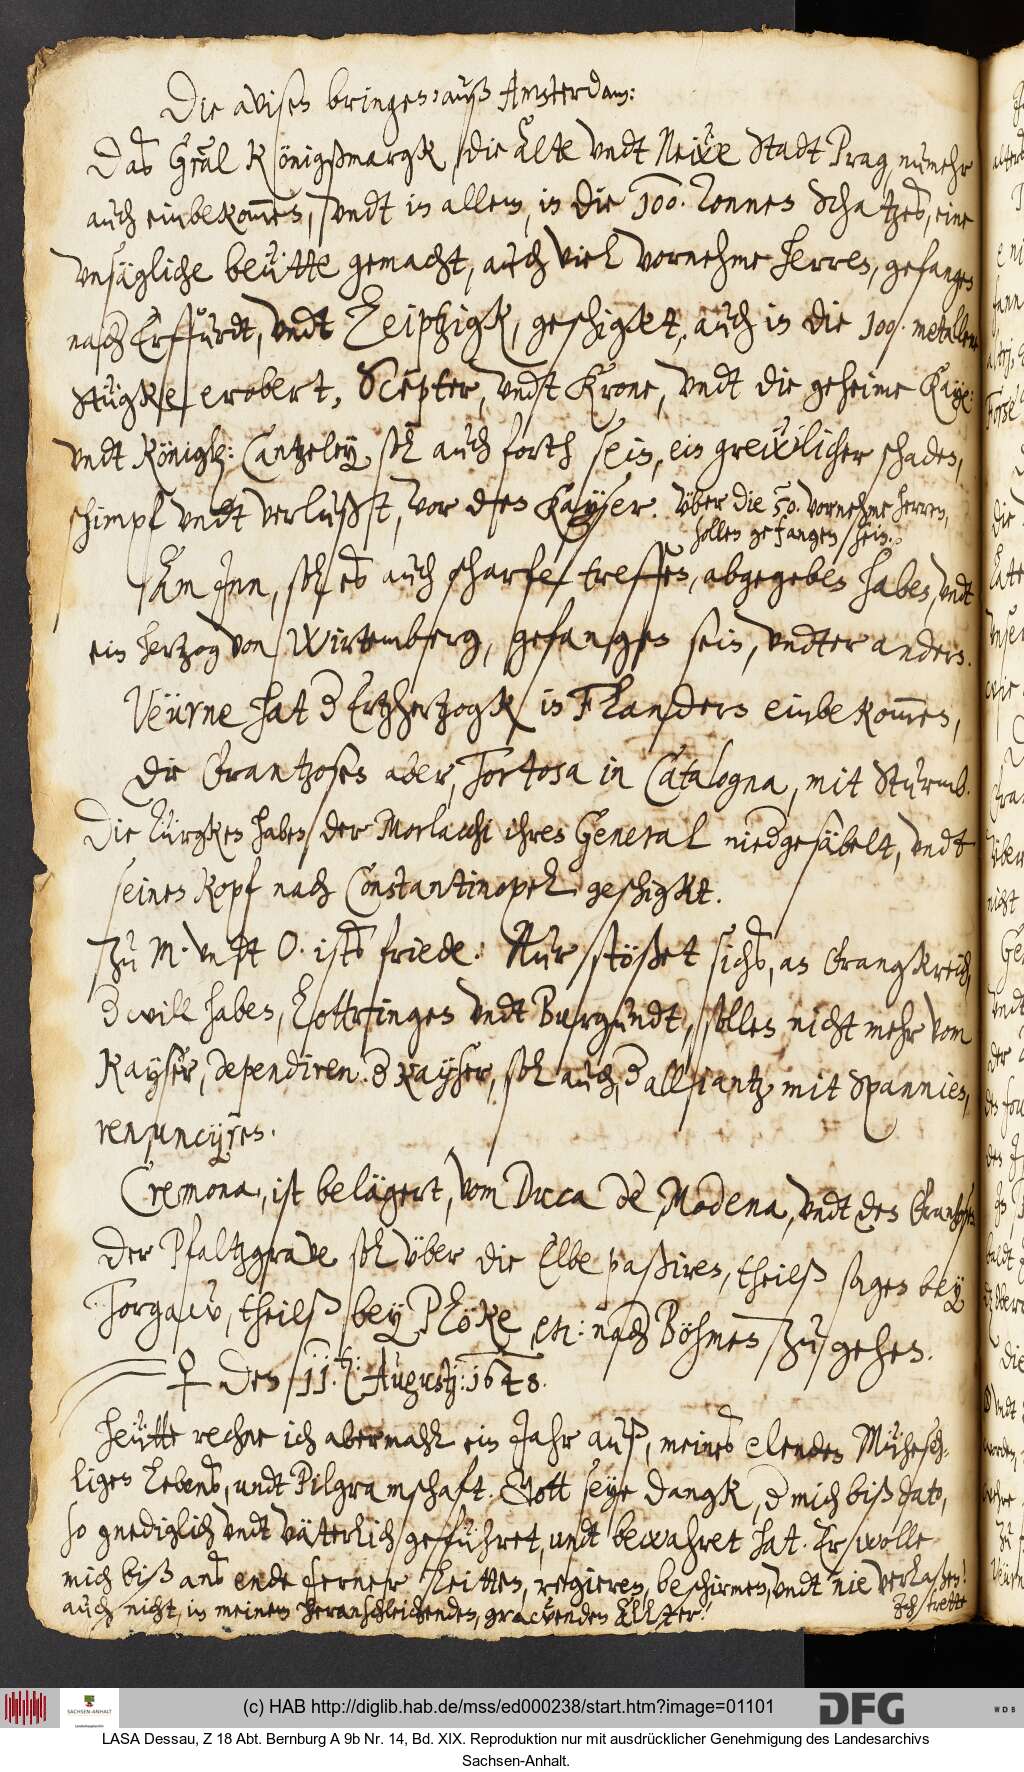 Die avisen bringen, auß Amsterdam:
Das G͞ral Königßmargk, die Älte undt Neẅe Stadt Prag, nu͞mehr
auch einbeko͞men, undt in allem, in die 100. Tonnen Schatzes, eine
unsägliche beütte gemacht, auch viel vornehme herren, gefangen
nach Erffurdt, undt Leiptzigk, geschigkt, auch in die 100. metallen
Stügke erobert, Scepter, undt Krone, undt die geheime Kayß:
undt Königl: Cantzeley, soll auch forth sein, ein greẅlicher schaden,
schimpf undt verlußt, vor den Kayser. über die 50. vornehme herren,
sollen gefangen sein.
Am Inn, soll es auch scharfe treffen, abgegeben haben, undt
ein hertzog von Wirtemberg, gefangen sein, undter anders.
Veürne hat der Ertzhertzogk, in Flandern einbeko͞men,
Die Frantzosen aber, Tortosa in Catalogna, mit Sturmb.
Die Türgken haben, der Morlacchi ihren General niedgesäbelt, undt
seinen Kopf nach Constantinopel geschigkt.
Zu M. undt O. ists friede: Nur stößet sichs, an Frangkreich,
d will haben, Lottringen undt Burgundt, sollen nicht mehr vom
Kayser, dependiren. d Kayser, soll auch, d alliantz mit Spannien,
renuncijren.
Cremona, ist belägert, vom Duca de Modena, undt den Frantzosen
Der Pfaltzgrave soll über die Elbe paßiren, theilß sagen bey
Torgaw, theilß bey Plöke, etc: nach Böhmen zu gehen.
♀ den 11. t: Augustj: 1648.
Heütte rechne ich abermahl ein Jahr auß, meines elenden Müheseh-
ligen Lebens, undt Pilgramschaft. Gott seye dangk, d mich biß dato,
so gnediglich undt vätterlich geführet, undt bewahret hat. Er wolle
mich biß ans ende ferner leitten, regieren, beschirmen, undt nie verlaßen!
auch nicht, in meinem heranschleichenden, grawenden Allter! Ich trette
(c) HAB http://diglib.hab.de/mss/ed000238/start.htm?image=01101
SACHSEN-ANHALT
DFG
WDB
LASA Dessau, Z 18 Abt. Bernburg A 9b Nr. 14, Bd. XIX. Reproduktion nur mit ausdrücklicher Genehmigung des Landesarchivs
Sachsen-Anhalt.